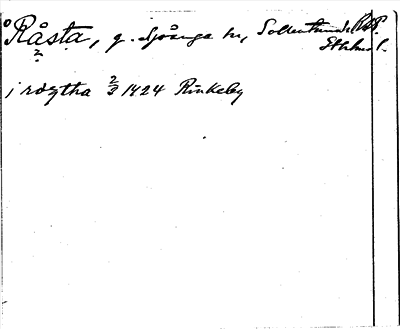 Råsta, g. Spånga sn, Sollentuna hd
Sthlms l.
2
i røztha 2/3 1424 Rinkeby